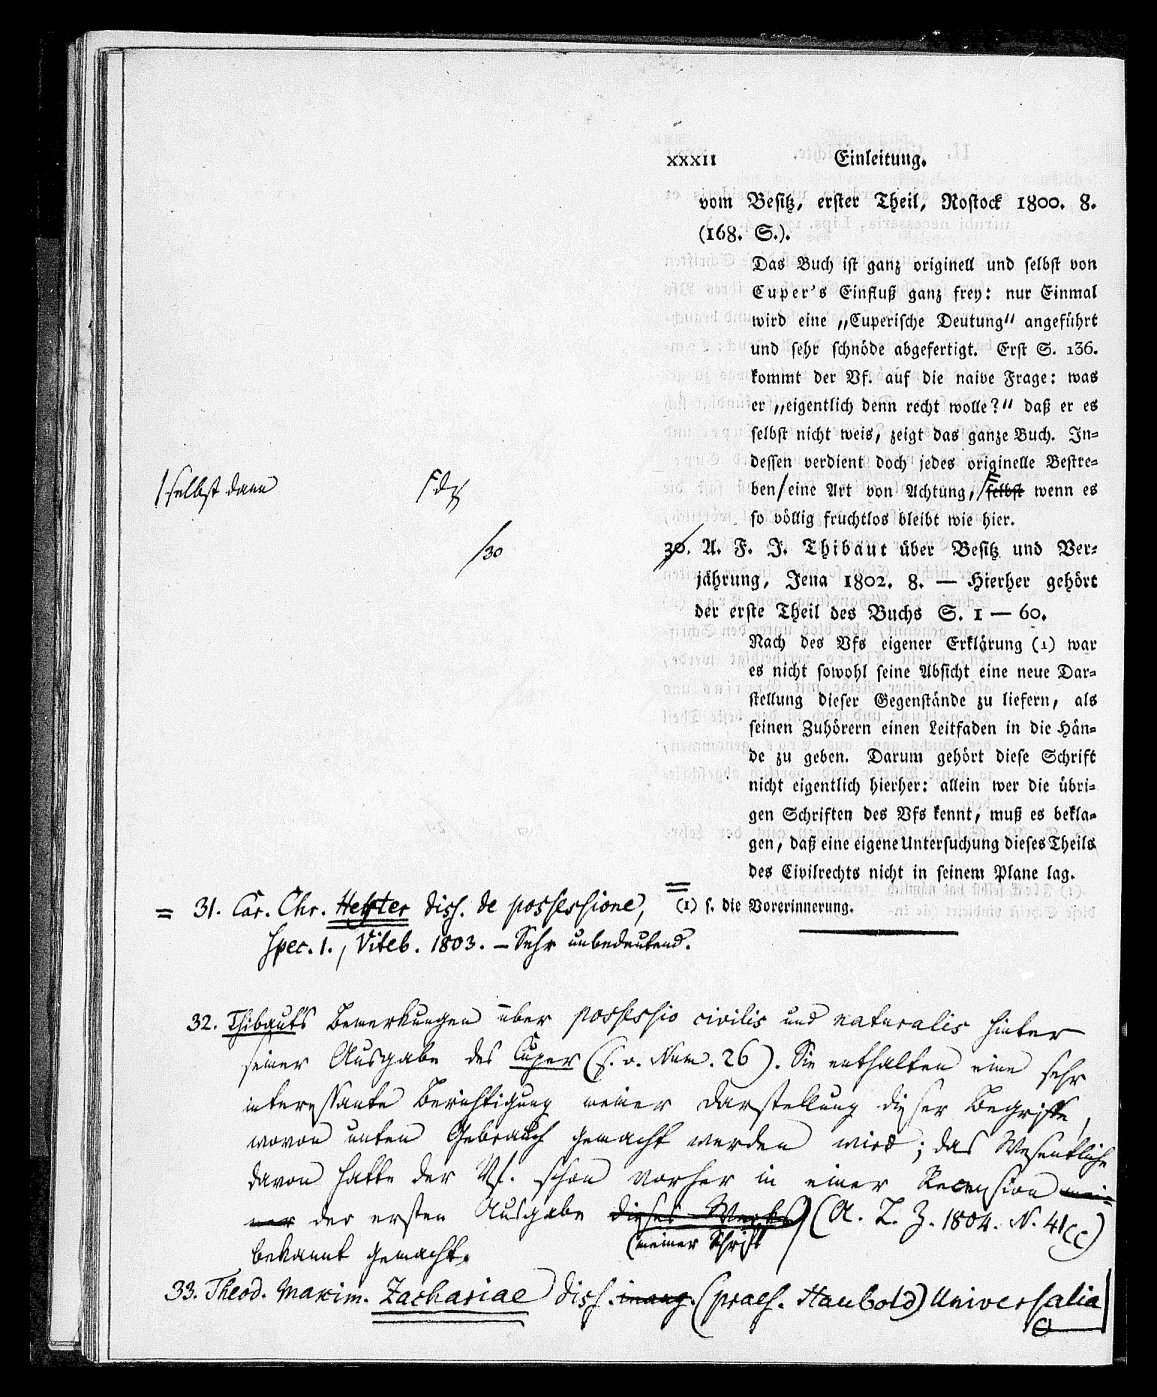 XXXII Einleitung.
vom Besitz, erster Theil, Rostock 1800. 8.
(168. S.).
Das Buch ist ganz originell und selbst von
Cuper's Einfluß ganz frey: nur Einmal
wird eine „Cuperische Deutung“ angeführt
und sehr schnöde abgefertigt. Erst S. 136.
kommt der Vf. auf die naive Frage: was
er „eigentlich denn recht wolle?“ daß er es
selbst nicht weis, zeigt das ganze Buch. In-
dessen verdient doch jedes originelle Bestre-
ben eine Art von Achtung, selbst wenn es
so völlig fruchtlos bleibt wie hier.
selbst dann
30
30. A. F. J. Thibaut über Besitz und Ver-
jährung, Jena 1802. 8. — Hierher gehört
der erste Theil des Buchs S. 1 — 60.
Nach des Vfs eigener Erklärung (1) war
es nicht sowohl seine Absicht eine neue Dar-
stellung dieser Gegenstände zu liefern, als
seinen Zuhörern einen Leitfaden in die Hän-
de zu geben. Darum gehört diese Schrift
nicht eigentlich hierher: allein wer die übri-
gen Schriften des Vfs kennt, muß es bekla-
gen, daß eine eigene Untersuchung dieses Theils
des Civilrechts nicht in seinem Plane lag.
(1) s. die Vorerinnerung.
= 31. Car. Chr. diss. de possessione,
spec. 1., Viteb. 1803. – Sehr unbedeutend.
32. Thibauts Bemerkungen über possessio civilis und naturalis hinter
seiner Ausgabe des Cuper (s. o. Num. 26). Sie enthalten eine sehr
interessante Berichtigung meiner Darstellung dieser Begriffe,
wovon unten Gebrauch gemacht werden wird; das Wesentliche
davon hatte der Vf. schon vorher in einer Recension mei-
ner der ersten Ausgabe dieses Werks (A. L. Z. 1804. N. 41
(meiner Schrift
bekannt gemacht.
33. Theod. Maxim. Zachariae diss. inaug. (praes. Haubold) Universalia